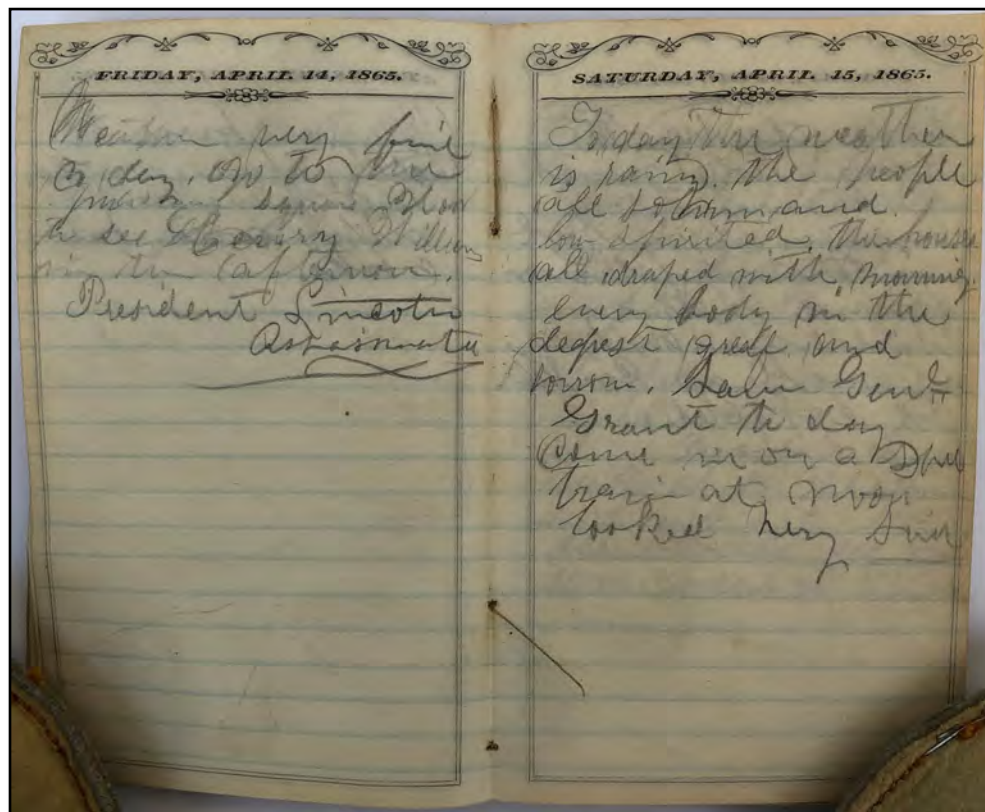 FRIDAY, APRIL 14, 1865.
Weather very fine
to day. go to the
square
to see Henry Wilson
in the afternoon.
President Lincoln
Assasinated
SATURDAY, APRIL 15, 1865.
To day the weather
is rainy. the people
all solemn and
low spirited. the houses
all draped with morning
every body in the
depest greaf and
sorrow. Saw Genl
Grant to day
Come in on a
train at noon
looked very